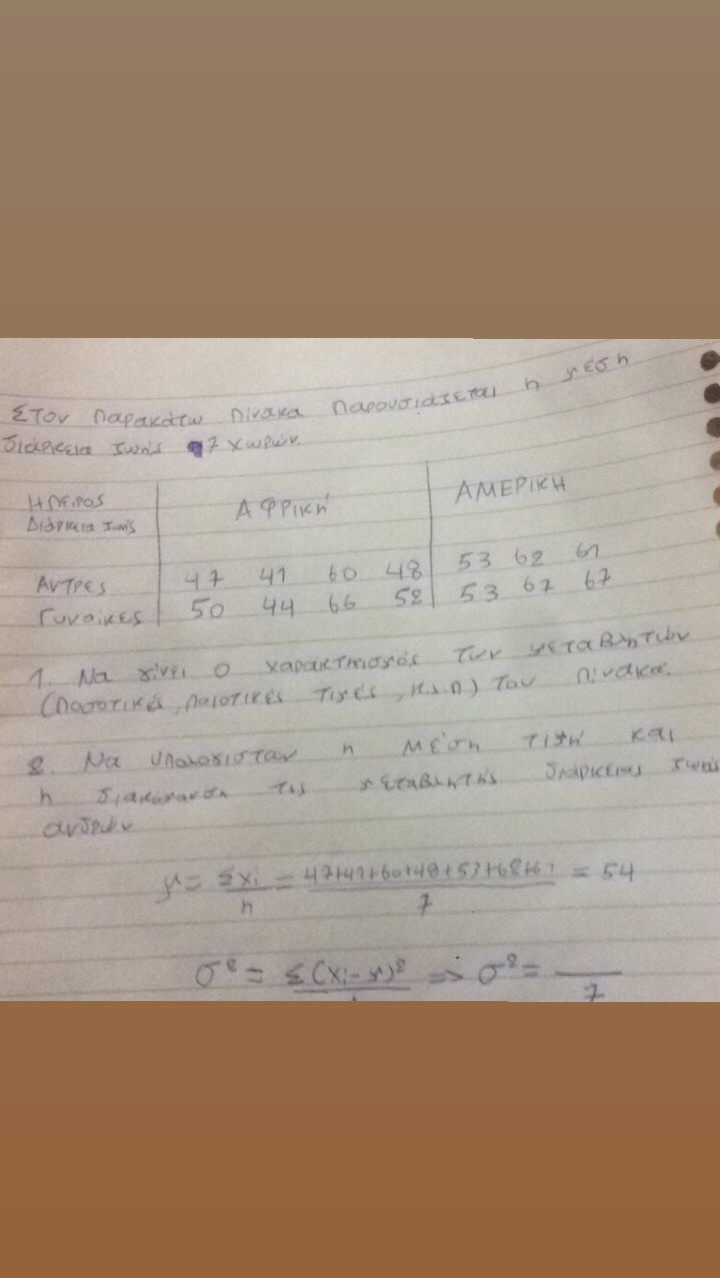 Στον παρακάτω πίνακα παρουσιάζεται η μέση
διάρκεια ζωής 7 χωρών
Ηπειρος ΑΦρικη ΑΜΕΡΙΚΗ
Διάρκεια Ζωής
Αντρες 47 41 60 48 53 62
Γυναίκες 50 44 66 52 53 67 67
1. Να γίνει ο χαρακτηισμός των μεταβλητών
(ποσοτικές, ποιοτικές τιμές, κ.λ.π) του πίνακα.
2. Να υπολογιστουν η Μέση τιμή και
η διακύμανση της μεταβλητής διάρκειας ζωής
ανδρών
μ = Σxi/n = /7 = 54
σ² = Σ(xi-μ)² => σ² = /7